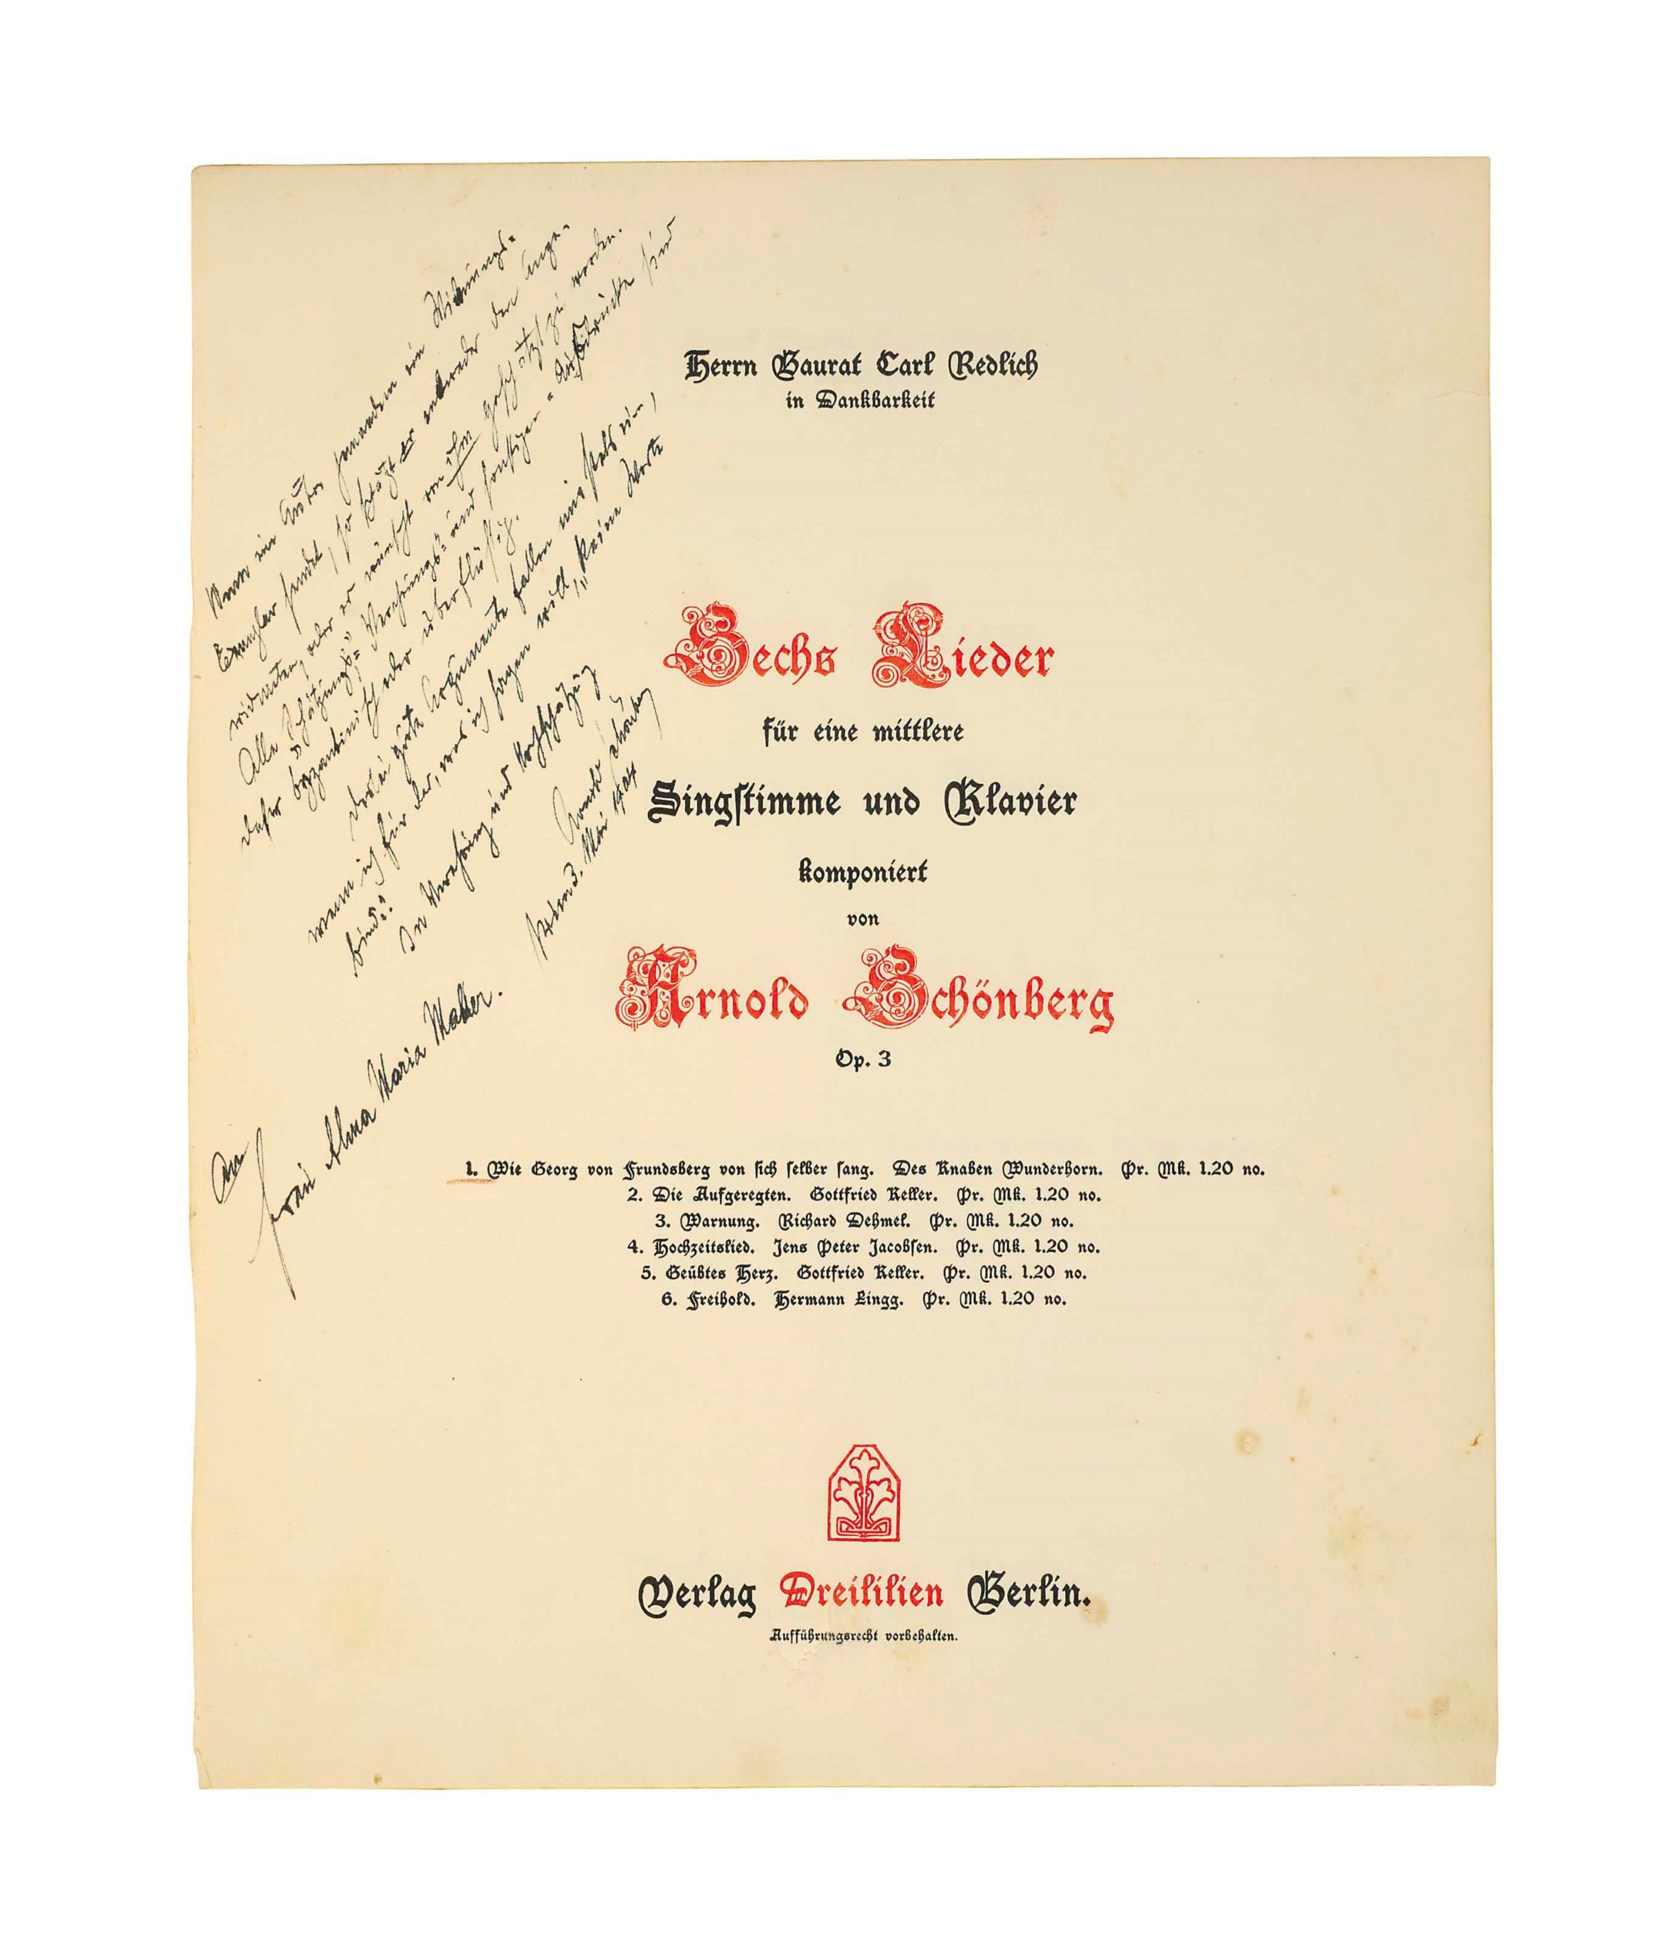 Wenn ein Autor jemandem ein Widmungs-
Exemplar sendet, so schätzt er entweder den Ange-
widmeten, oder er wünscht von ihm geschätzt zu werden.
Alle Schätzungs- Verehrungs- und sonstigen - Ausdrücke sind
daher byzantinisch oder überflüssig.
Derlei gute Argumente fallen mir stets ein,
wenn ich für das, was ich sagen will, „keine Worte
finde“.
In Verehrung und Hochschätzung
Arnold Schönberg
Wien 3. Mai 1904
An
Frau Alma Maria Mahler.
Herrn Baurat Carl Redlich
in Dankbarkeit
Sechs Lieder
für eine mittlere
Singstimme und Klavier
komponiert
von
Arnold Schönberg
Op. 3
1. Wie Georg von Frundsberg von sich selber sang. Des Knaben Wunderhorn. Pr. Mk. 1.20 no.
2. Die Aufgeregten. Gottfried Keller. Pr. Mk. 1.20 no.
3. Warnung. Richard Dehmel. Pr. Mk. 1.20 no.
4. Hochzeitslied. Jens Peter Jacobsen. Pr. Mk. 1.20 no.
5. Geübtes Herz. Gottfried Keller. Pr. Mk. 1.20 no.
6. Freihold. Hermann Lingg. Pr. Mk. 1.20 no.
Verlag Dreililien Berlin.
Aufführungsrecht vorbehalten.